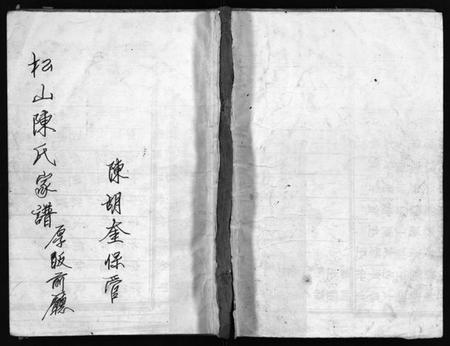 松山陳氏家譜
原版前廳
陳胡奎保管